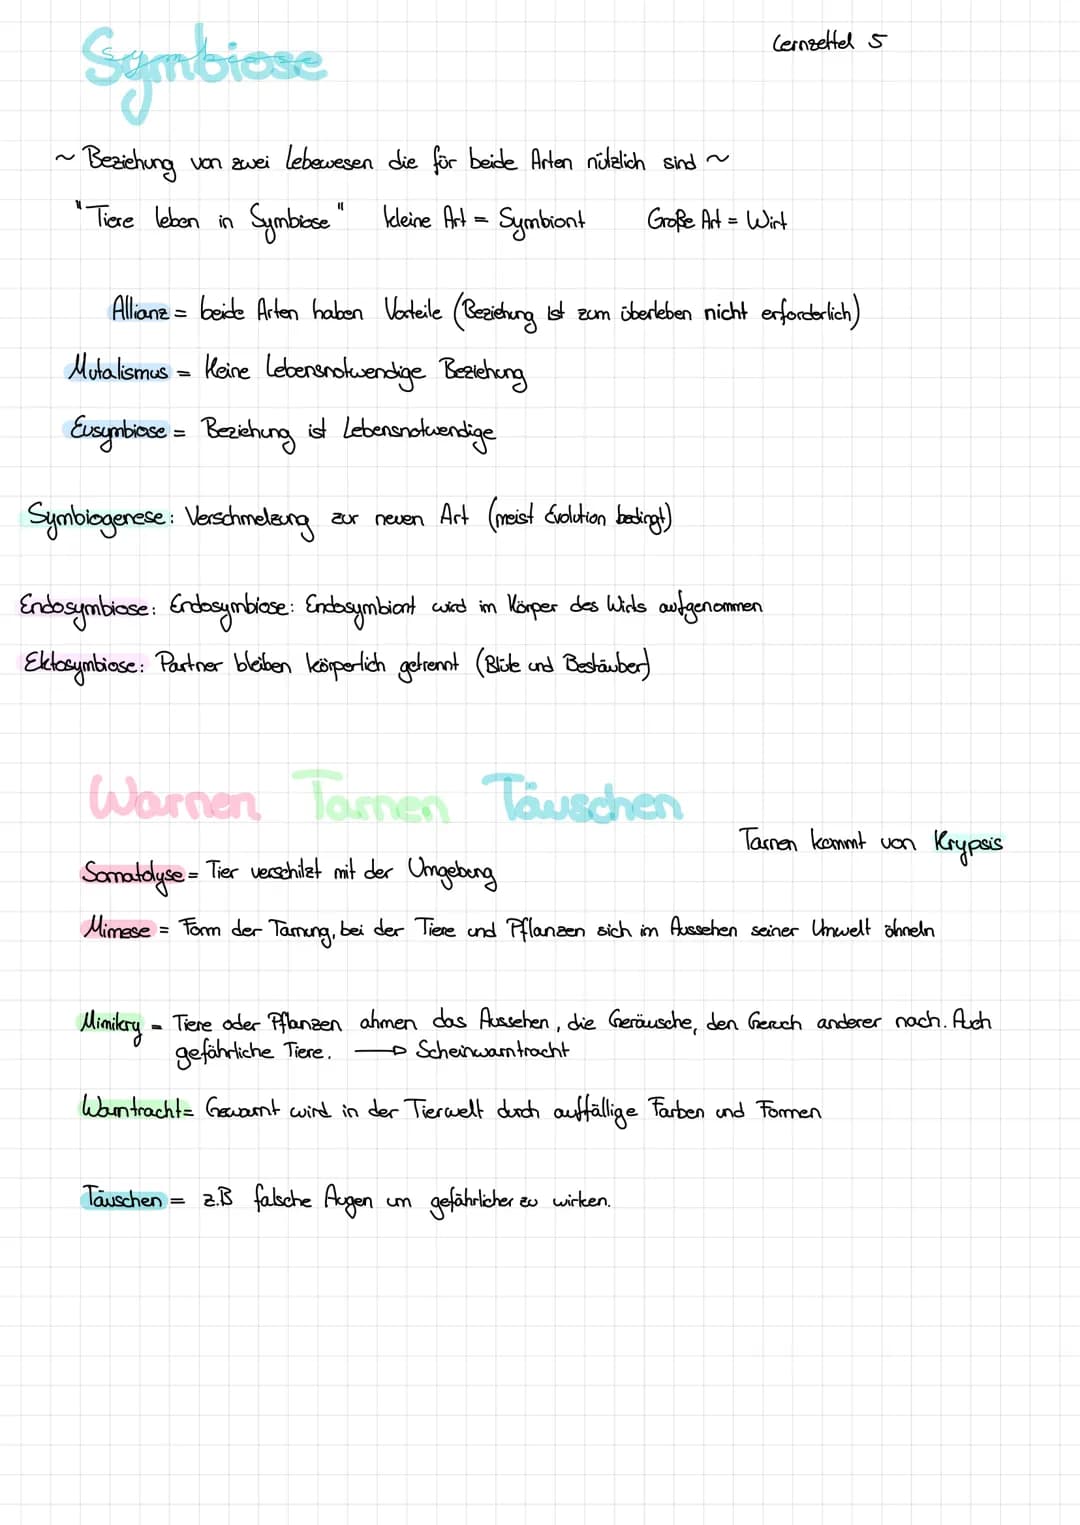 Symbiose
Lernzettel 5
~ Beziehung von zwei Lebewesen die für beide Arten nützlich sind ~
"Tiere leben in Symbiose" kleine Art = Symbiont Große Art = Wirt
Allianz = beide Arten haben Vorteile (Beziehung ist zum überleben nicht erforderlich)
Mutalismus = Keine Lebensnotwendige Beziehung
Eusymbiose = Beziehung ist Lebensnotwendige
Symbiogenese: Verschmelzung zur neuen Art (meist Evolution bedingt)
Endosymbiose: Endosymbiose: Endosymbiont wird im Körper des Wirts aufgenommen
Ektosymbiose: Partner bleiben körperlich getrennt (Blüte und Bestäuber)
Warnen Tarnen Täuschen
Tarnen kommt von Krypsis
Somatolyse = Tier verschilzt mit der Umgebung
Mimese = Form der Tarnung, bei der Tiere und Pflanzen sich im Aussehen seiner Umwelt ähneln
Mimikry = Tiere oder Pflanzen ahmen das Aussehen, die Geräusche, den Geruch anderer nach. Auch
gefährliche Tiere. → Scheinwarntracht
Warntracht = Gewarnt wird in der Tierwelt durch auffällige Farben und Formen
Täuschen = z.B falsche Augen um gefährlicher zu wirken.